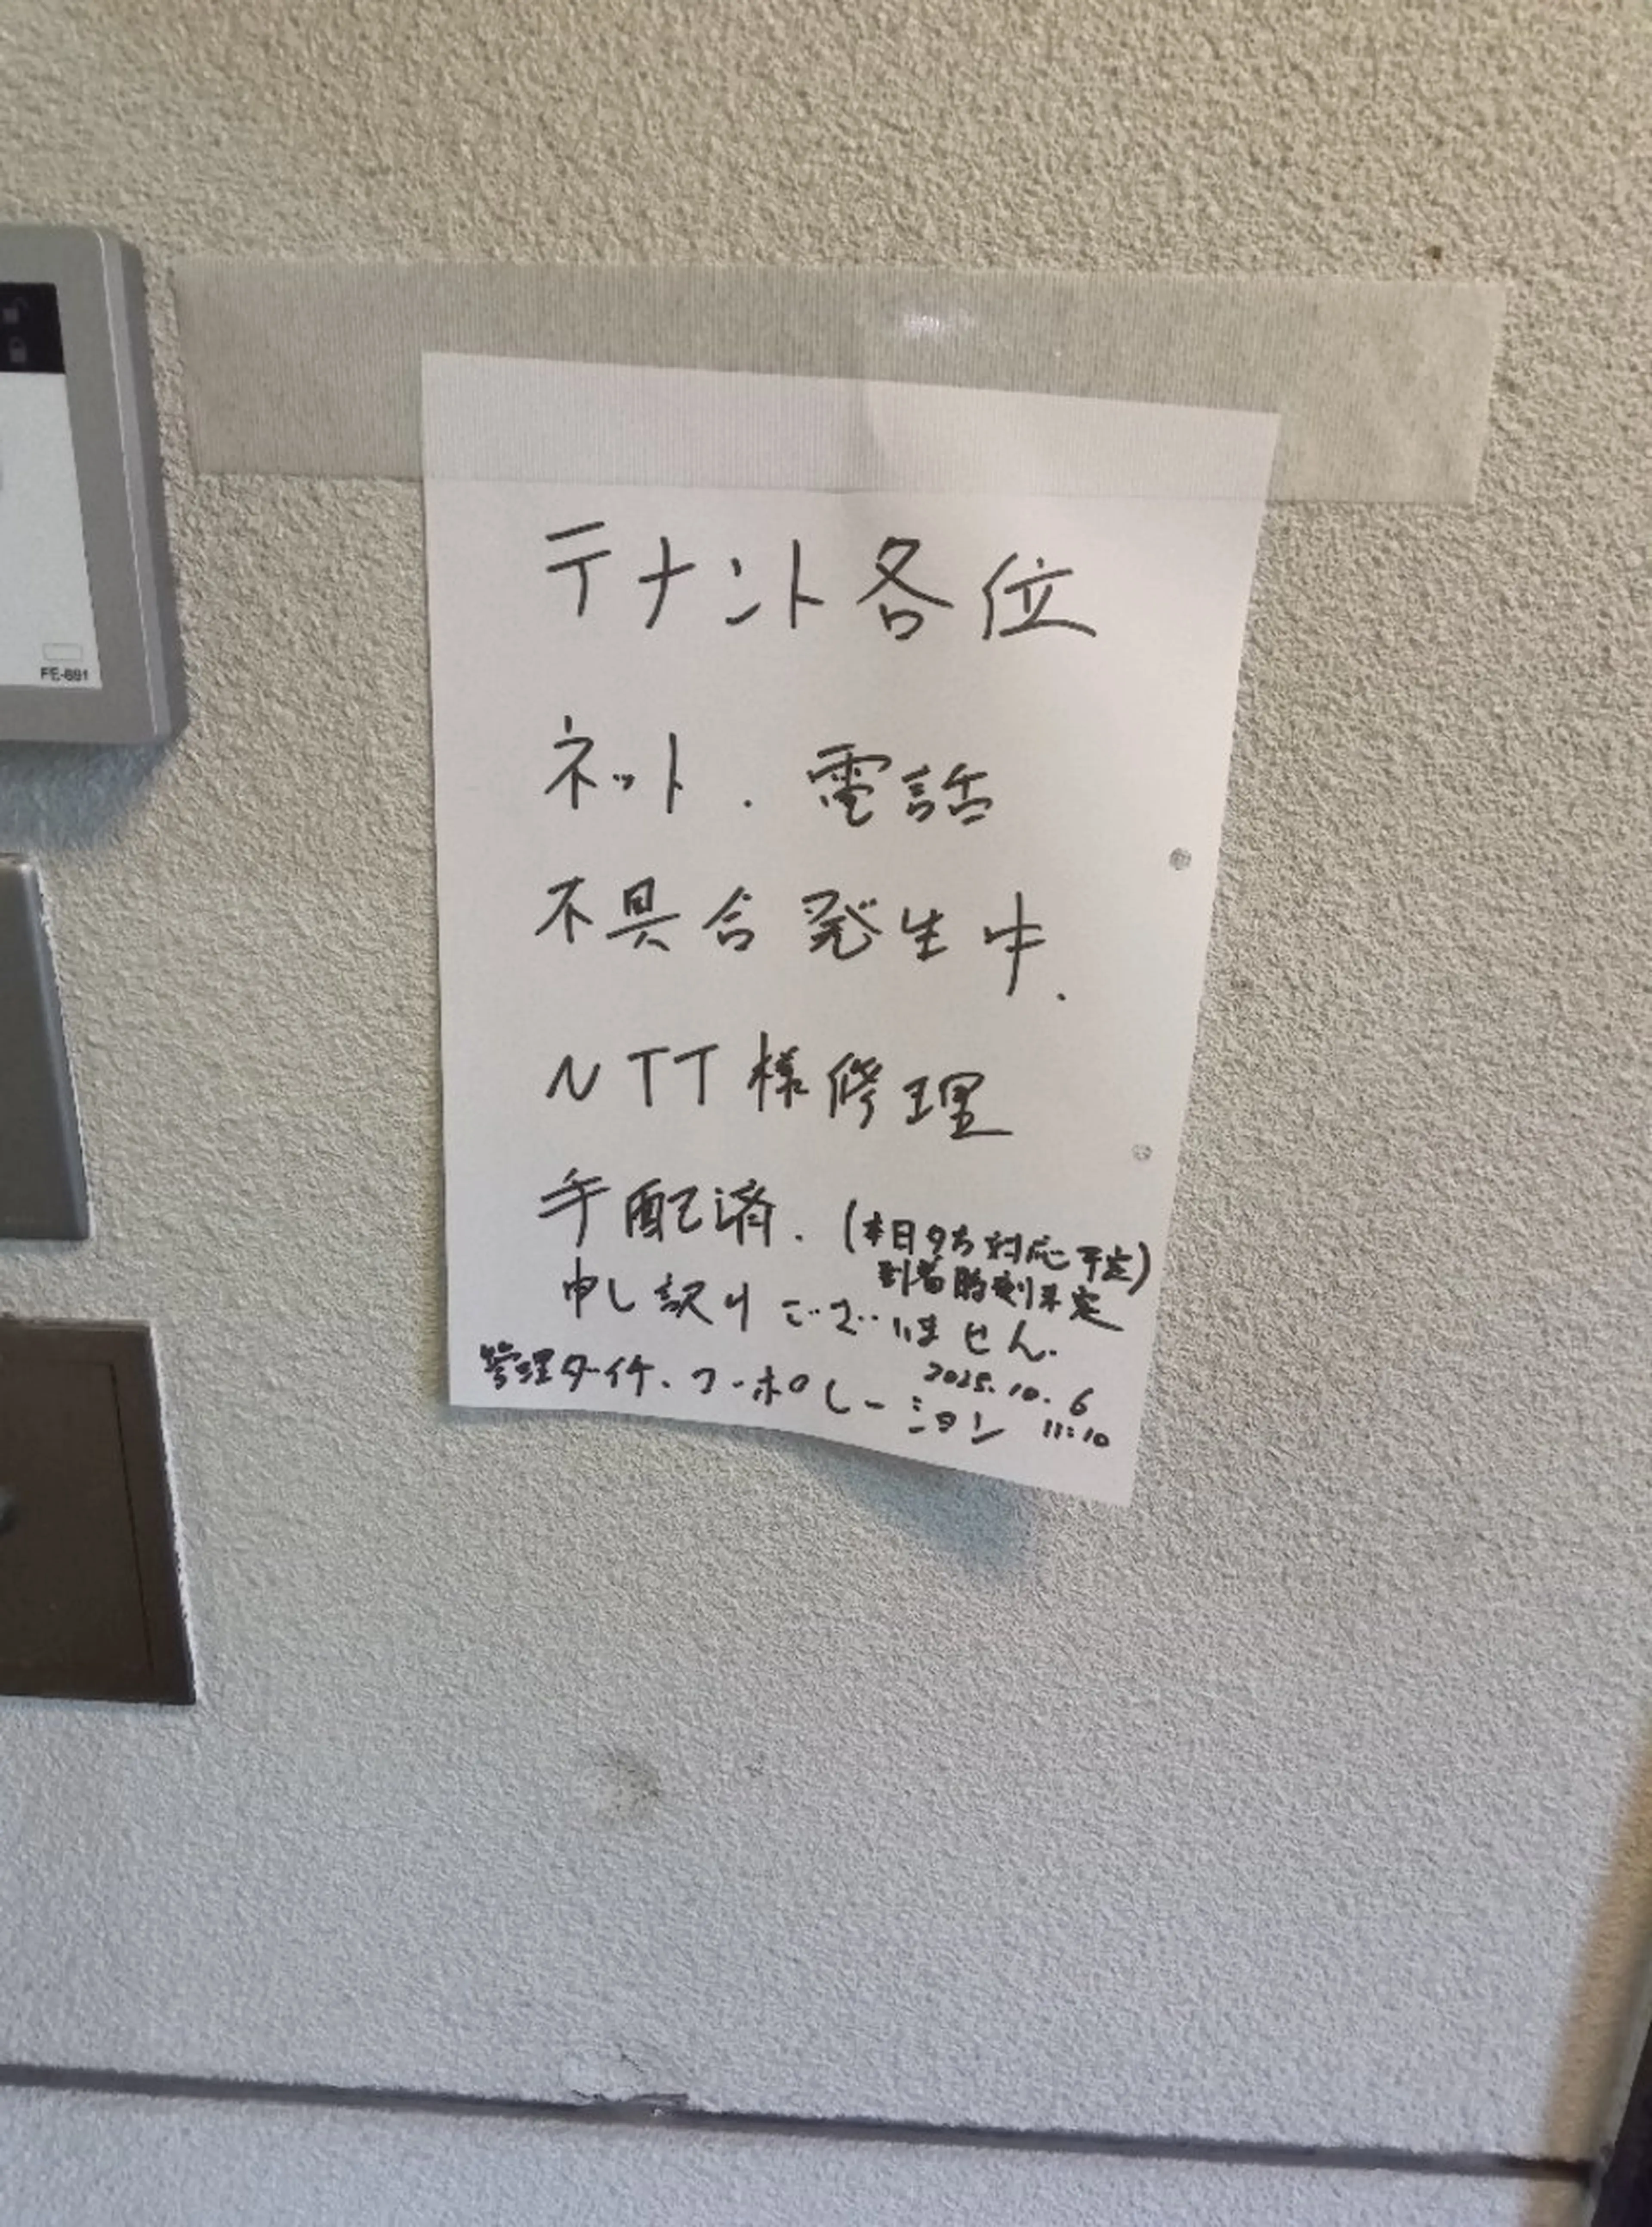 テナント各位
ネット.電話
不具合発生中.
NTT様修理
手配済.(本日夕方対応予定)
到着時刻未定
申し訳けございません.
管理ダイチ.コーポレーション
2025.10.6
11:10
FE-891